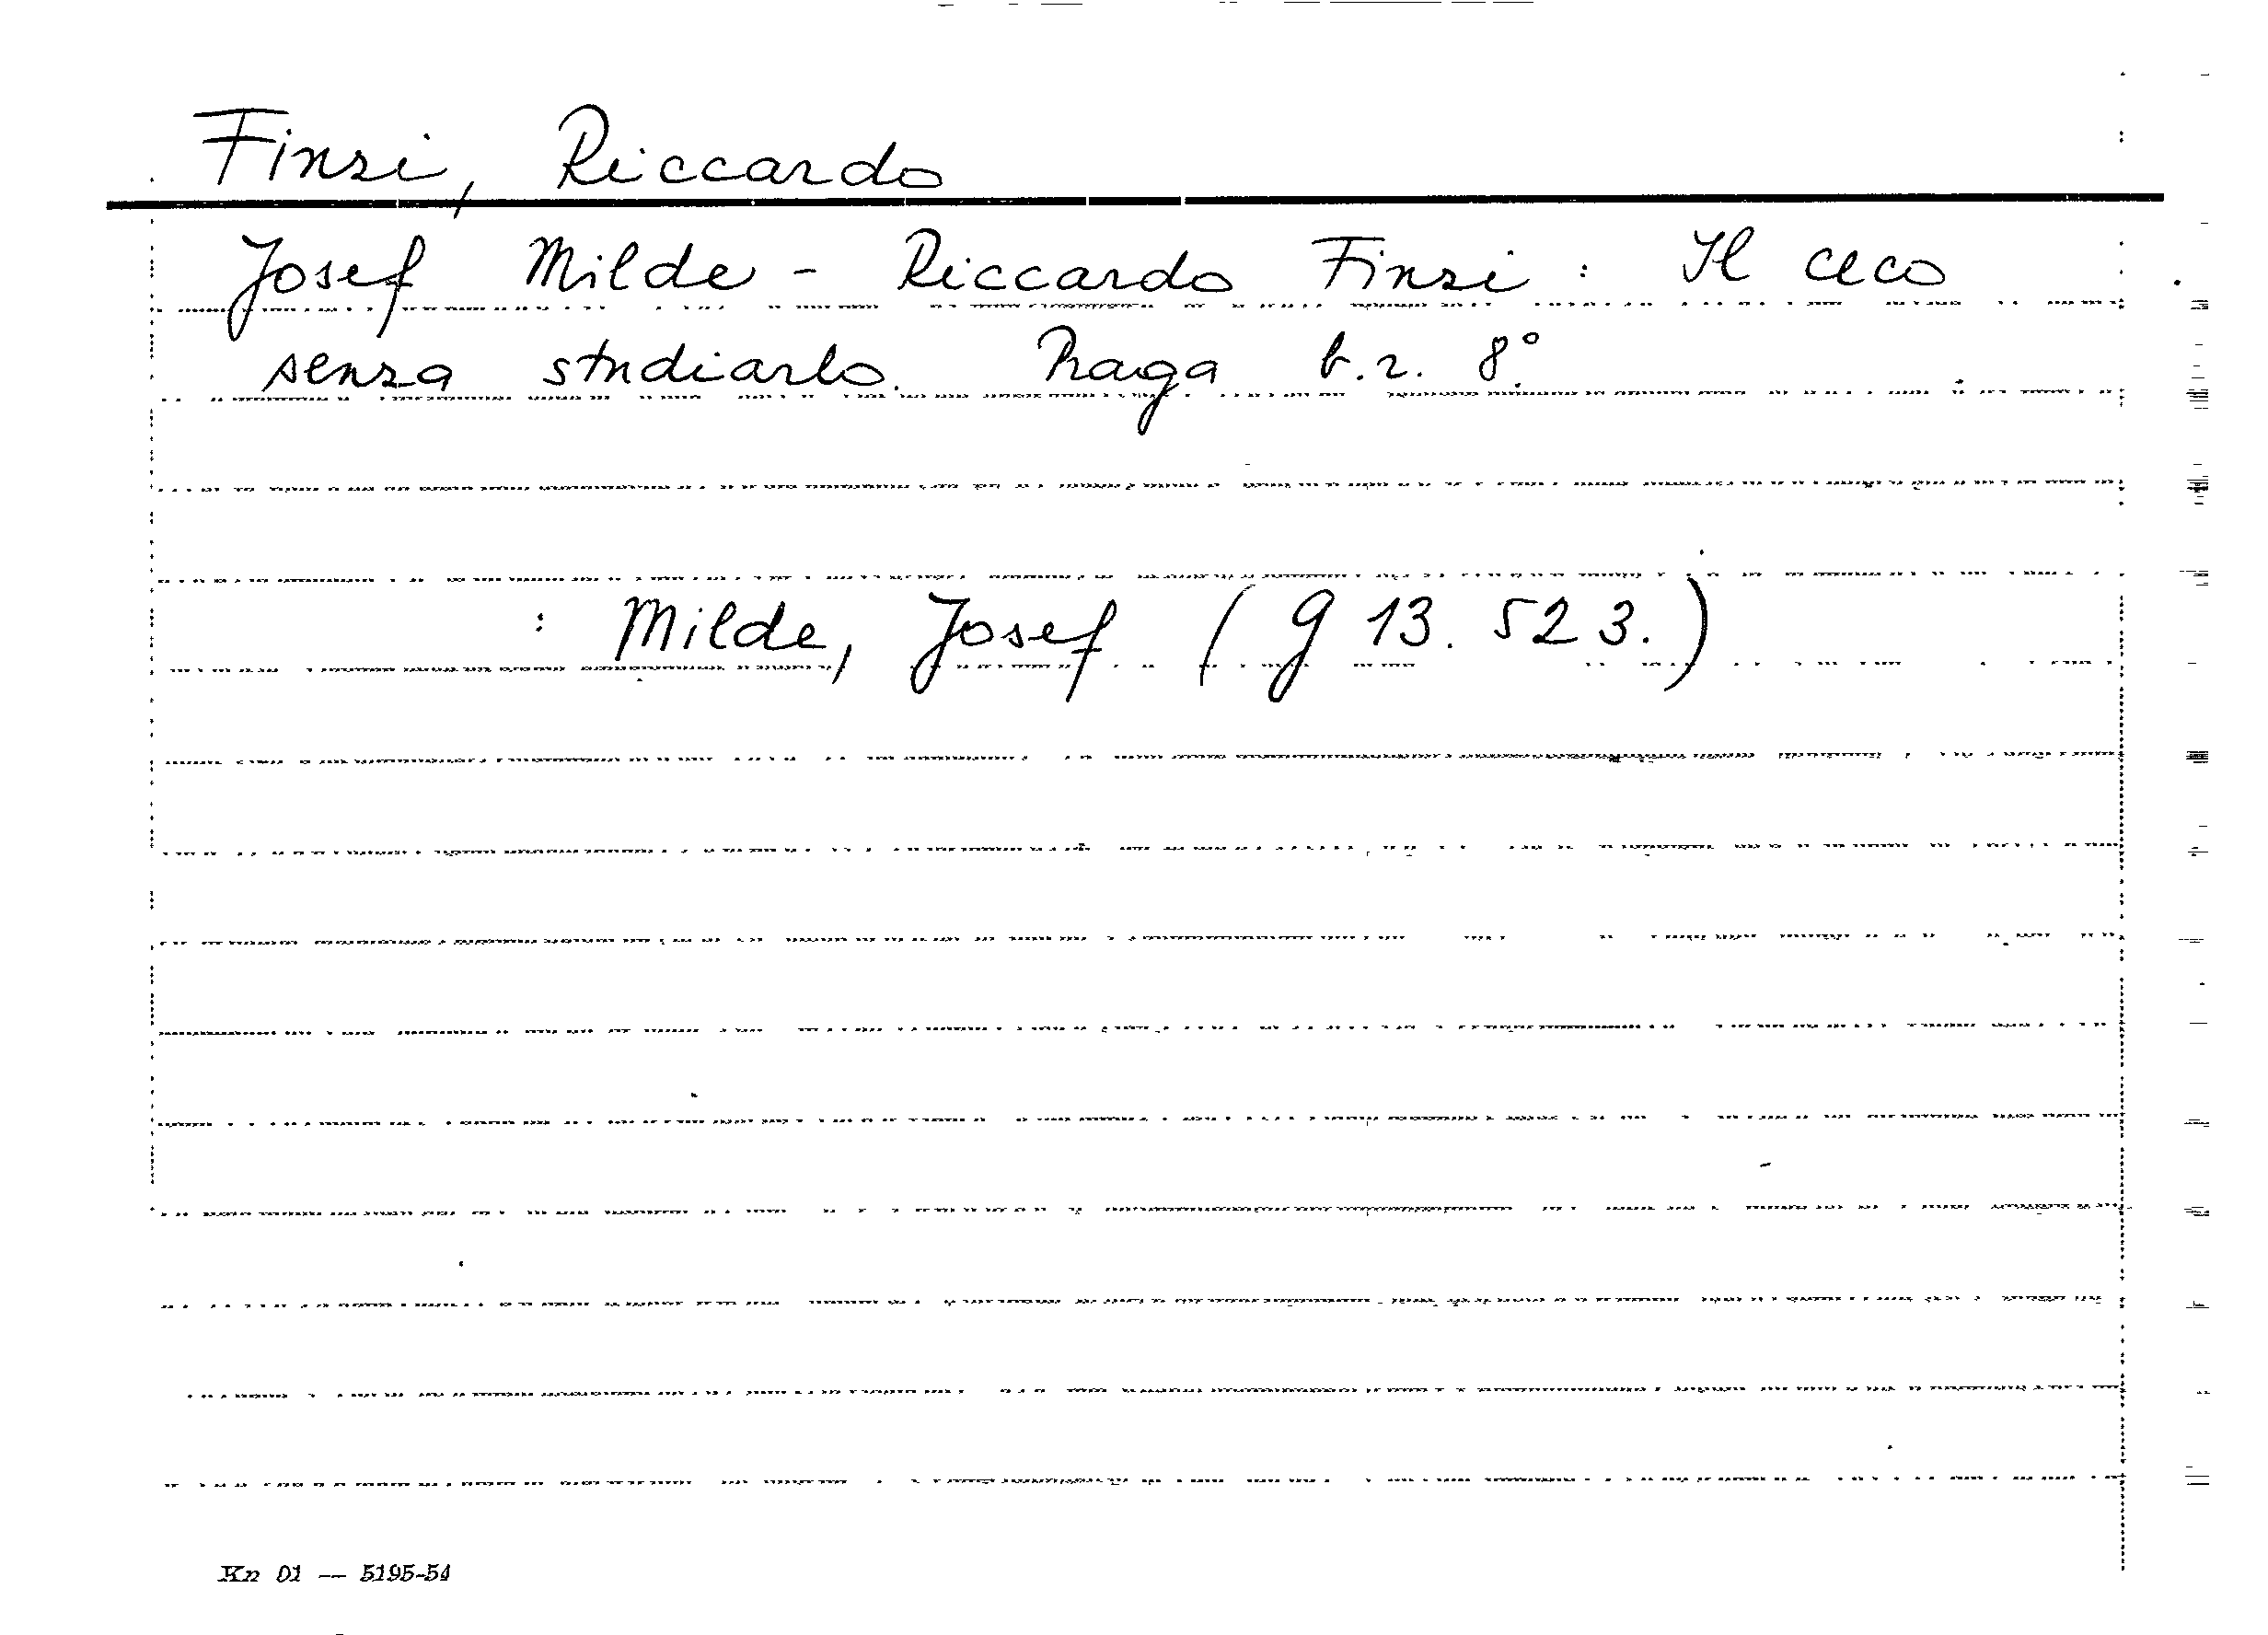 Finzi, Riccardo
Josef Milde - Riccardo Finzi : Il ceco
senza studiarlo. Praga b.r. 8°.
: Milde, Josef (g 13. 523.)
Kn 01 — 5195-54